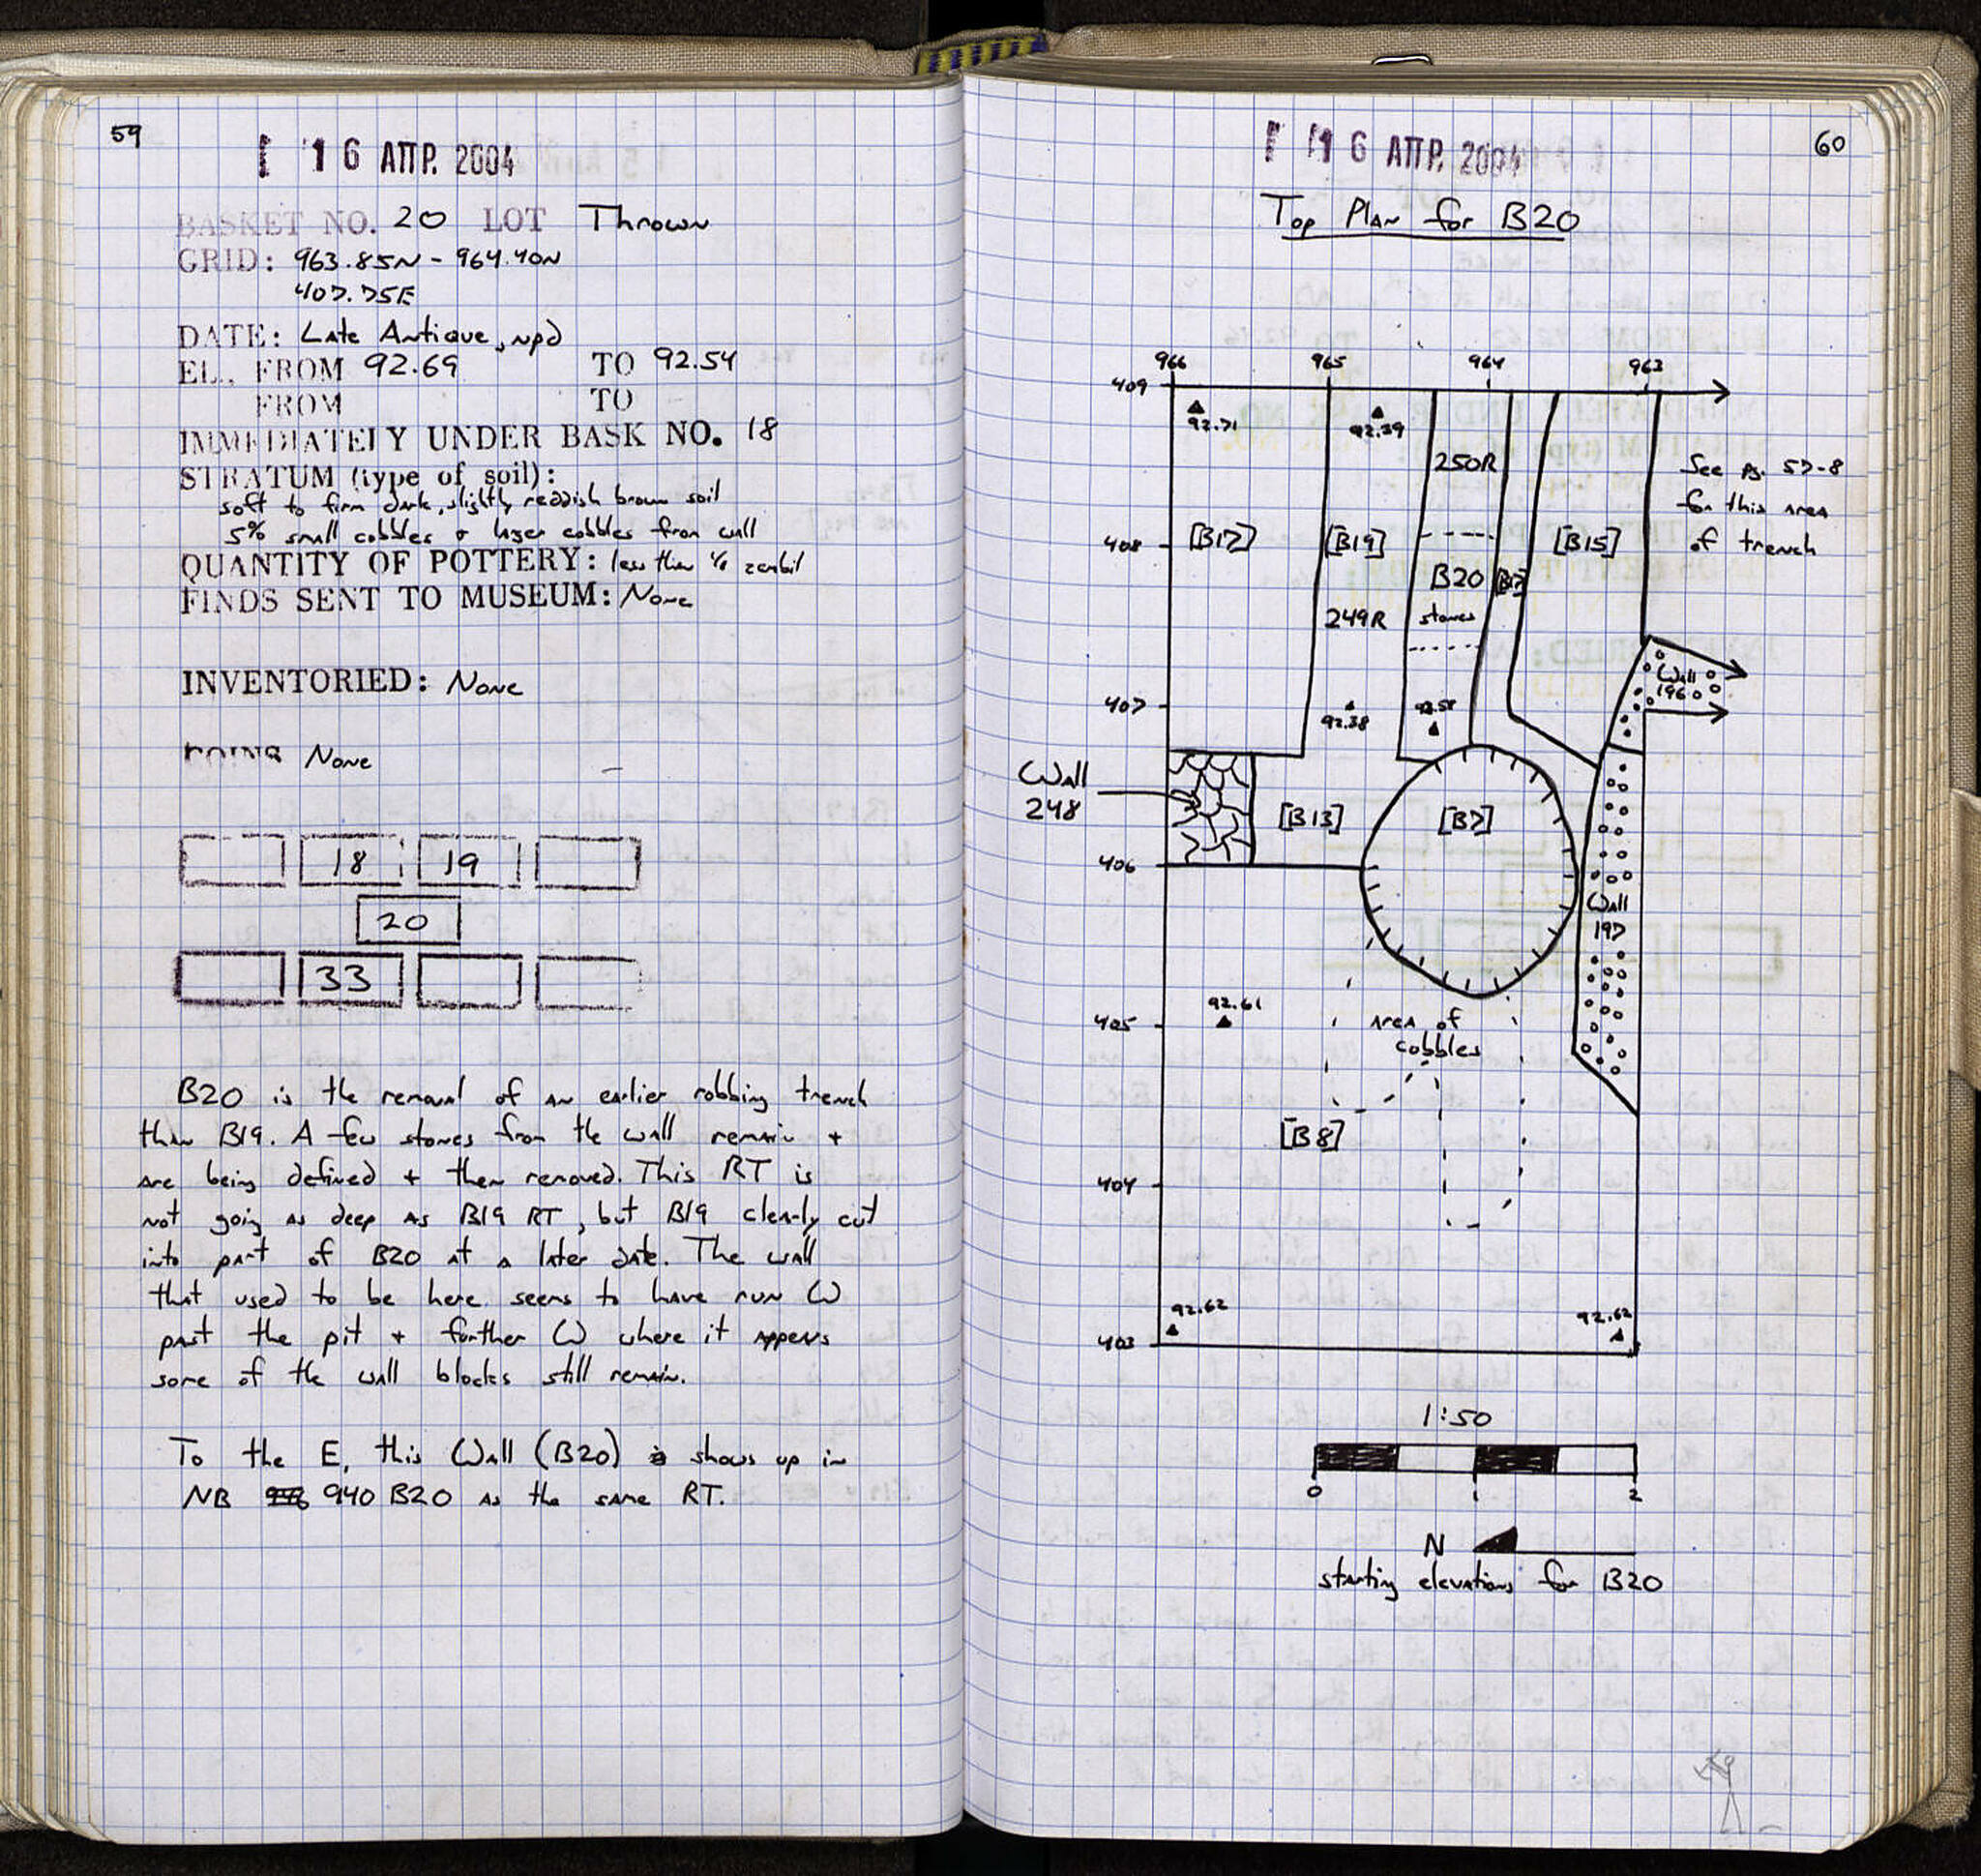 59
16 ΑΠΡ. 2004
BASKET NO. 20 LOT Thrown
GRID: 963.85N - 964.40N
407.75E
DATE: Late Antique, npd
EL., FROM 92.69 TO 92.54
FROM TO
IMMEDIATELY UNDER BASK NO. 18
STRATUM (type of soil):
soft to firm dark, slightly reddish brown soil
5% small cobbles + larger cobbles from wall
QUANTITY OF POTTERY: less than zembil
FINDS SENT TO MUSEUM: None
INVENTORIED: None
COINS None
18 19
20
33
B20 is the removal of an earlier robbing trench
than B19. A few stones from the wall remain +
are being defined + then removed. This RT is
not going as deep as B19 RT, but B19 clearly cut
into part of B20 at a later date. The wall
that used to be here seems to have run W
past the pit + further W where it appears
some of the wall blocks still remain.
To the E, this Wall (B20) shows up in
NB 940 B20 as the same RT.
60
16 ΑΠΡ. 2004
Top Plan for B20
966 965 964 963
409
92.71 92.39
250R
See pg. 57-8
for this area
of trench
408 [B17] [B19] [B15]
B20 [B17]
249R stones
Wall
196
407 92.38 92.58
Wall
248
[B13] [B7]
406
Wall
197
92.61
405 area of
cobbles
[B8]
404
92.62 92.62
403
1:50
0 1 2
N
starting elevations for B20